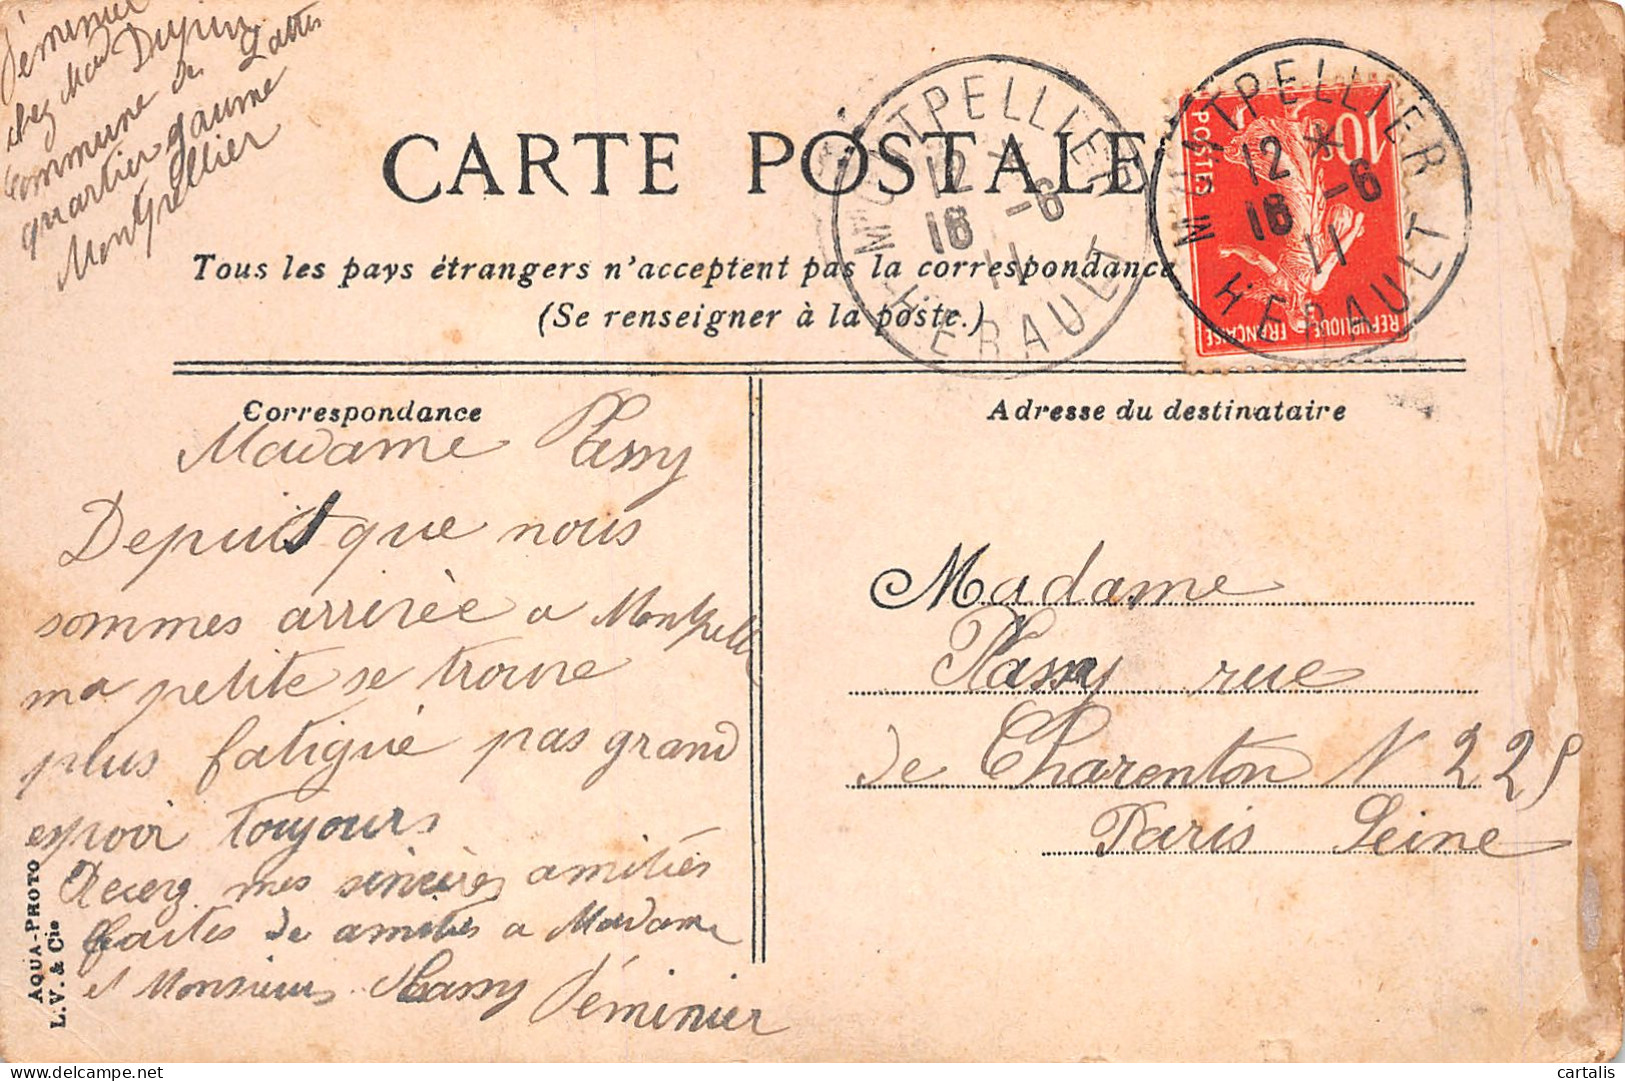 Féminier
chez Mad Dupin
Commune de Lattes
quartier gaume
Montpellier
CARTE POSTALE
Tous les pays étrangers n'acceptent pas la correspondance
(Se renseigner à la poste.)
MONTPELLIER
12 *
16 -6
11
HÉRAULT
MONTPELLIER
12 *
16 -6
11
HÉRAULT
10c
POSTES
REPUBLIQUE FRANÇAISE
Correspondance
Madame Plassy
Depuis que nous
sommes arrivée a Montpell
ma petite se trouve
plus fatigué pas grand
espoir toujours
Recez mes sincères amitiés
faites de amitiés a Madame
et Monsieurs Plassy Féminier
AQUA-PHOTO
L. V. & Cie
Adresse du destinataire
Madame
Plassy rue
de Charenton N 225
Paris Seine
cartalis